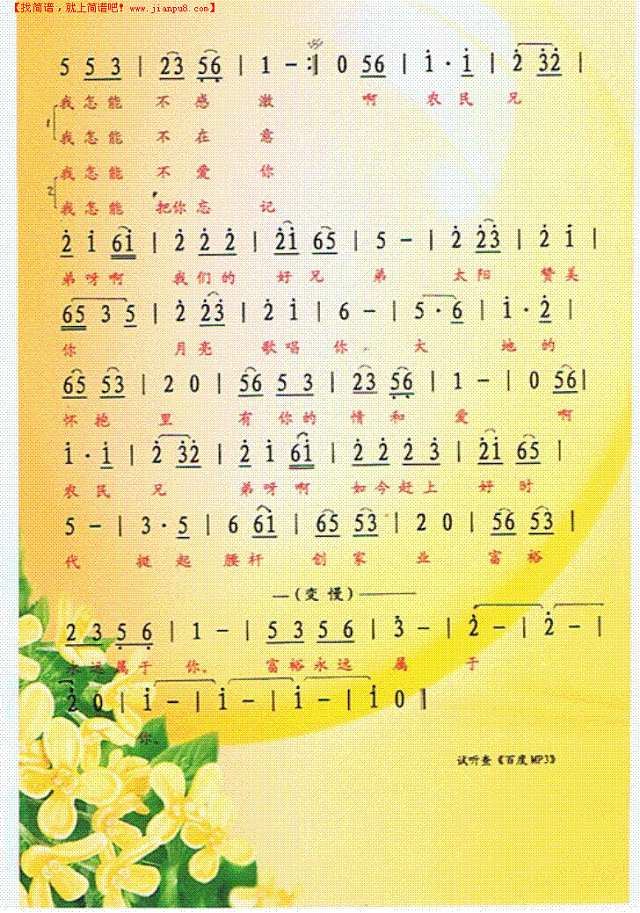 【找简谱，就上简谱吧! www.jianpu8.com】
5 5 3 | 2 3 5 6 | 1 - :‖ 0 5 6 | i · i | 2 3 2 |
我怎能 不 感 激 啊 农 民 兄
1 我怎能 不 在 意
我怎能 不 爱 你
2 我怎能 把你忘 记
2 i 6 i | 2 2 2 | 2 i 6 5 | 5 - | 2 2 3 | 2 i |
弟呀啊 我们的 好兄 弟 太 阳 赞美
6 5 3 5 | 2 2 3 | 2 i | 6 - | 5 · 6 | i · 2 |
你 月亮 歌唱 你、 大 地的
6 5 5 3 | 2 0 | 5 6 5 3 | 2 3 5 6 | 1 - | 0 5 6 |
怀抱 里 有你的 情和 爱 啊
i · i | 2 3 2 | 2 i 6 i | 2 2 2 3 | 2 i 6 5 |
农民 兄 弟呀啊 如今赶上 好时
5 - | 3 · 5 | 6 6 i | 6 5 5 3 | 2 0 | 5 6 5 3 |
代 挺起 腰杆 创家 业 富裕
—(变慢)———
2 3 5 6 | 1 - | 5 3 5 6 | 3 - | 2 - | 2 - |
永远属于 你、 富裕永远 属 于
2 0 | i - | i - | i - | i 0 ‖
你、
试听查《百度MP3》